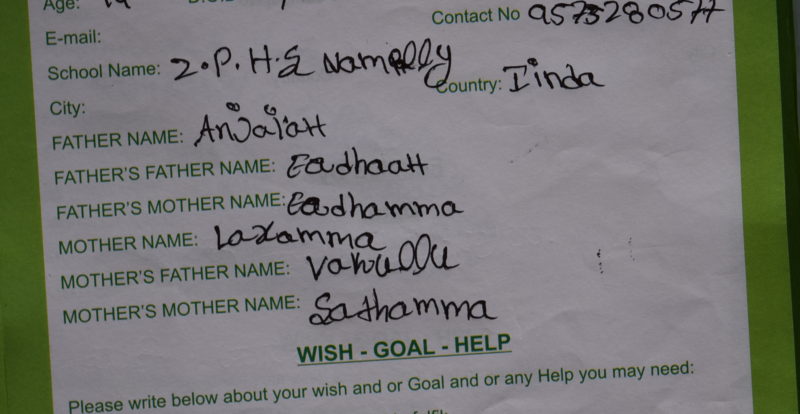 Age:
Contact No 9573280577
E-mail:
School Name: Z.P.H.S Nampally
City: Country: Iinda
FATHER NAME: Anjaiah
FATHER'S FATHER NAME: Eadhaah
FATHER'S MOTHER NAME: Eadhamma
MOTHER NAME: Laxamma
MOTHER'S FATHER NAME: Vakullu
MOTHER'S MOTHER NAME: Sathamma
WISH - GOAL - HELP
Please write below about your wish and or Goal and or any Help you may need: